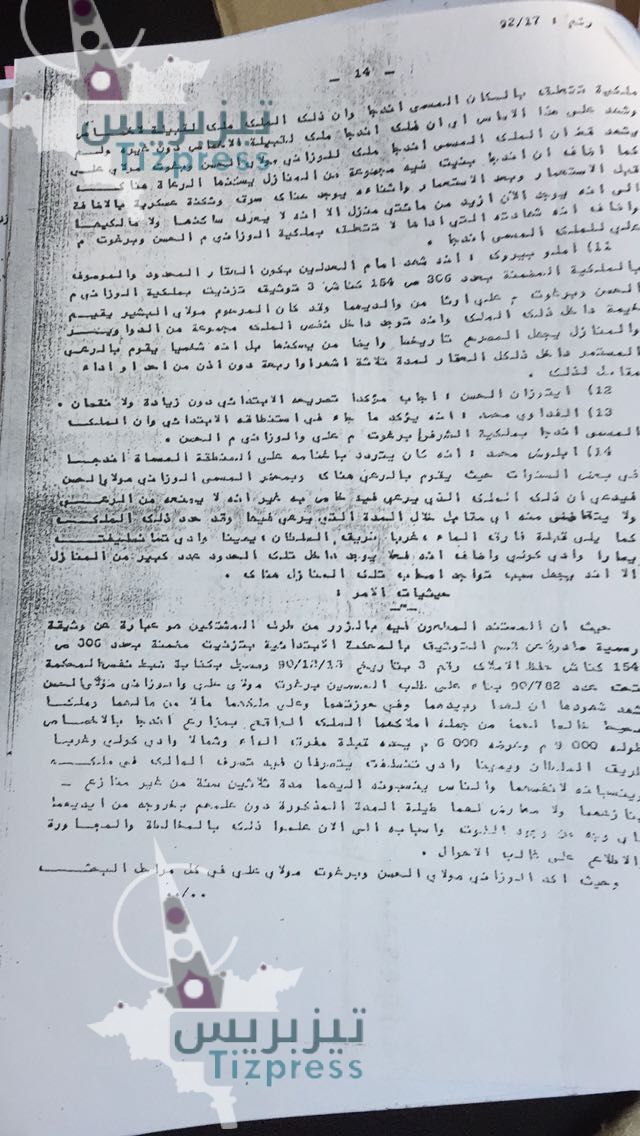 رقم : 92/17
- 14 -
ملكية تتعلق بالمكان المسمى اندجا وان ذلك الملك ملك لقبيلة
وشهد على هذا الاساس اي ان فلك اندجا ملك لقبيلة الاخصاص دون غير ولم
يشهد قط ان الملك المسمى اندجا ملك للوزاني مولاي الحسن وبرغوت مولاي علي
كما اضاف ان اندجا بنيت فيه مجموعة من المنازل يسكنها الرعاة هناك
قبل الاستعمار وبعد الاستعمار واثناءه يوجد هناك سوق وثكنة عسكرية بالاضافة
الى انه يوجد الان ازيد من مائتي منزل الا انه لا يعرف ساكنها ولا مالكيها
واضاف انه شهادته التي اداها لا تتعلق بملكية الوزاني م الحسن وبرغوت م
علي للملك المسمى اندجا .
بيروك : انه شهد امام العدلين بكون العقار المحدود والموصوف
بالملكية المضمنة بعدد 306 ص 154 كناش 3 توثيق تزنيت بملكية الوزاني م
الحسن وبرغوت م علي ارثا من والديهما وقد كان المرحوم مولاي البشير يقيم
خيمة داخل ذلك الملك وانه توجد داخل نفس الملك مجموعة من الدواوير
والمنازل يجهل المصرح تاريخها وايضا من يسكنها بل انه شخصيا يقوم بالرعي
المستمر داخل ذلك العقار لمدة ثلاثة اشهر او اربعة دون اذن من احد او اداء
مقابل لذلك .
12) ايتزان الحسن : اجاب مؤكدا تصريحه الابتدائي دون زيادة ولا نقصان .
13) الغداوي محمد : انه يؤكد ما جاء في استنطاقه الابتدائي وان الملك
المسمى اندجا بملكية الشرفاء برغوت م علي والوزاني م الحسن .
14) ابلوش محمد : انه كان يتردد باغنامه على المنطقة المسماة اندجا
في بعض السنوات حيث يقوم بالرعي هناك وبمحضر المسمى الوزاني مولاي الحسن
فيدعي ان ذلك الملك الذي يرعى فيه خاص به غير انه لا يمنعه من الرعي
ولا يتقاضى منه اي مقابل خلال المدة التي يرعى فيها وقد حدد ذلك الملك
كما يلي قبلة فارق الماء ، غربا طريق السلطان ، يمينا وادي
يسارا وادي كولي واضاف انه فعلا يوجد داخل تلك الحدود عدد كبير من المنازل
الا انه يجهل سبب تواجد اصحاب تلك المنازل هناك .
حيثيات الامر :
حيث ان المستند المطعون فيه بالزور من طرف المشتكين هو عبارة عن وثيقة
رسمية صادرة عن قسم التوثيق بالمحكمة الابتدائية بتزنيت مضمنة بعدد 306 ص
154 كناش حفظ الاملاك رقم 3 بتاريخ 90/12/13 ومسجل بكتابة ضبط نفس المحكمة
تحت عدد 90/782 بناء على طلب المسميين برغوت مولاي علي والوزاني مولاي الحسن
شهد شهودها ان لهما وبيدهما وفي حوزتهما وعلى ملكهما مالا من مالهما وملكا
صحيحا خالصا لهما من جملة املاكهما الملك الواقع بمزارع اندجا بالاخصاص
طوله 9000 م وعرضه 6000 م يحده قبلة مفرق الماء وشمالا وادي كولي وغربا
طريق السلطان ويمينا وادي يتصرفان فيه تصرف المالك في ملكه
وينسبانه لانفسهما والناس ينسبونه اليهما مدة ثلاثين سنة من غير منازع -
ينازعهما ولا معارض لهما طيلة المدة المذكورة دون علمهم بخروجه من ايديهما
باي وجه من وجوه الفوت واسبابه الى الان علموا ذلك بالمخالطة والمجاورة
الاطلاع على غالب الاحوال .
وحيث اكد الوزاني مولاي الحسن وبرغوت مولاي علي في كل مراحل البحث
../..
تيزبريس
Tizpress
تيزبريس
Tizpress